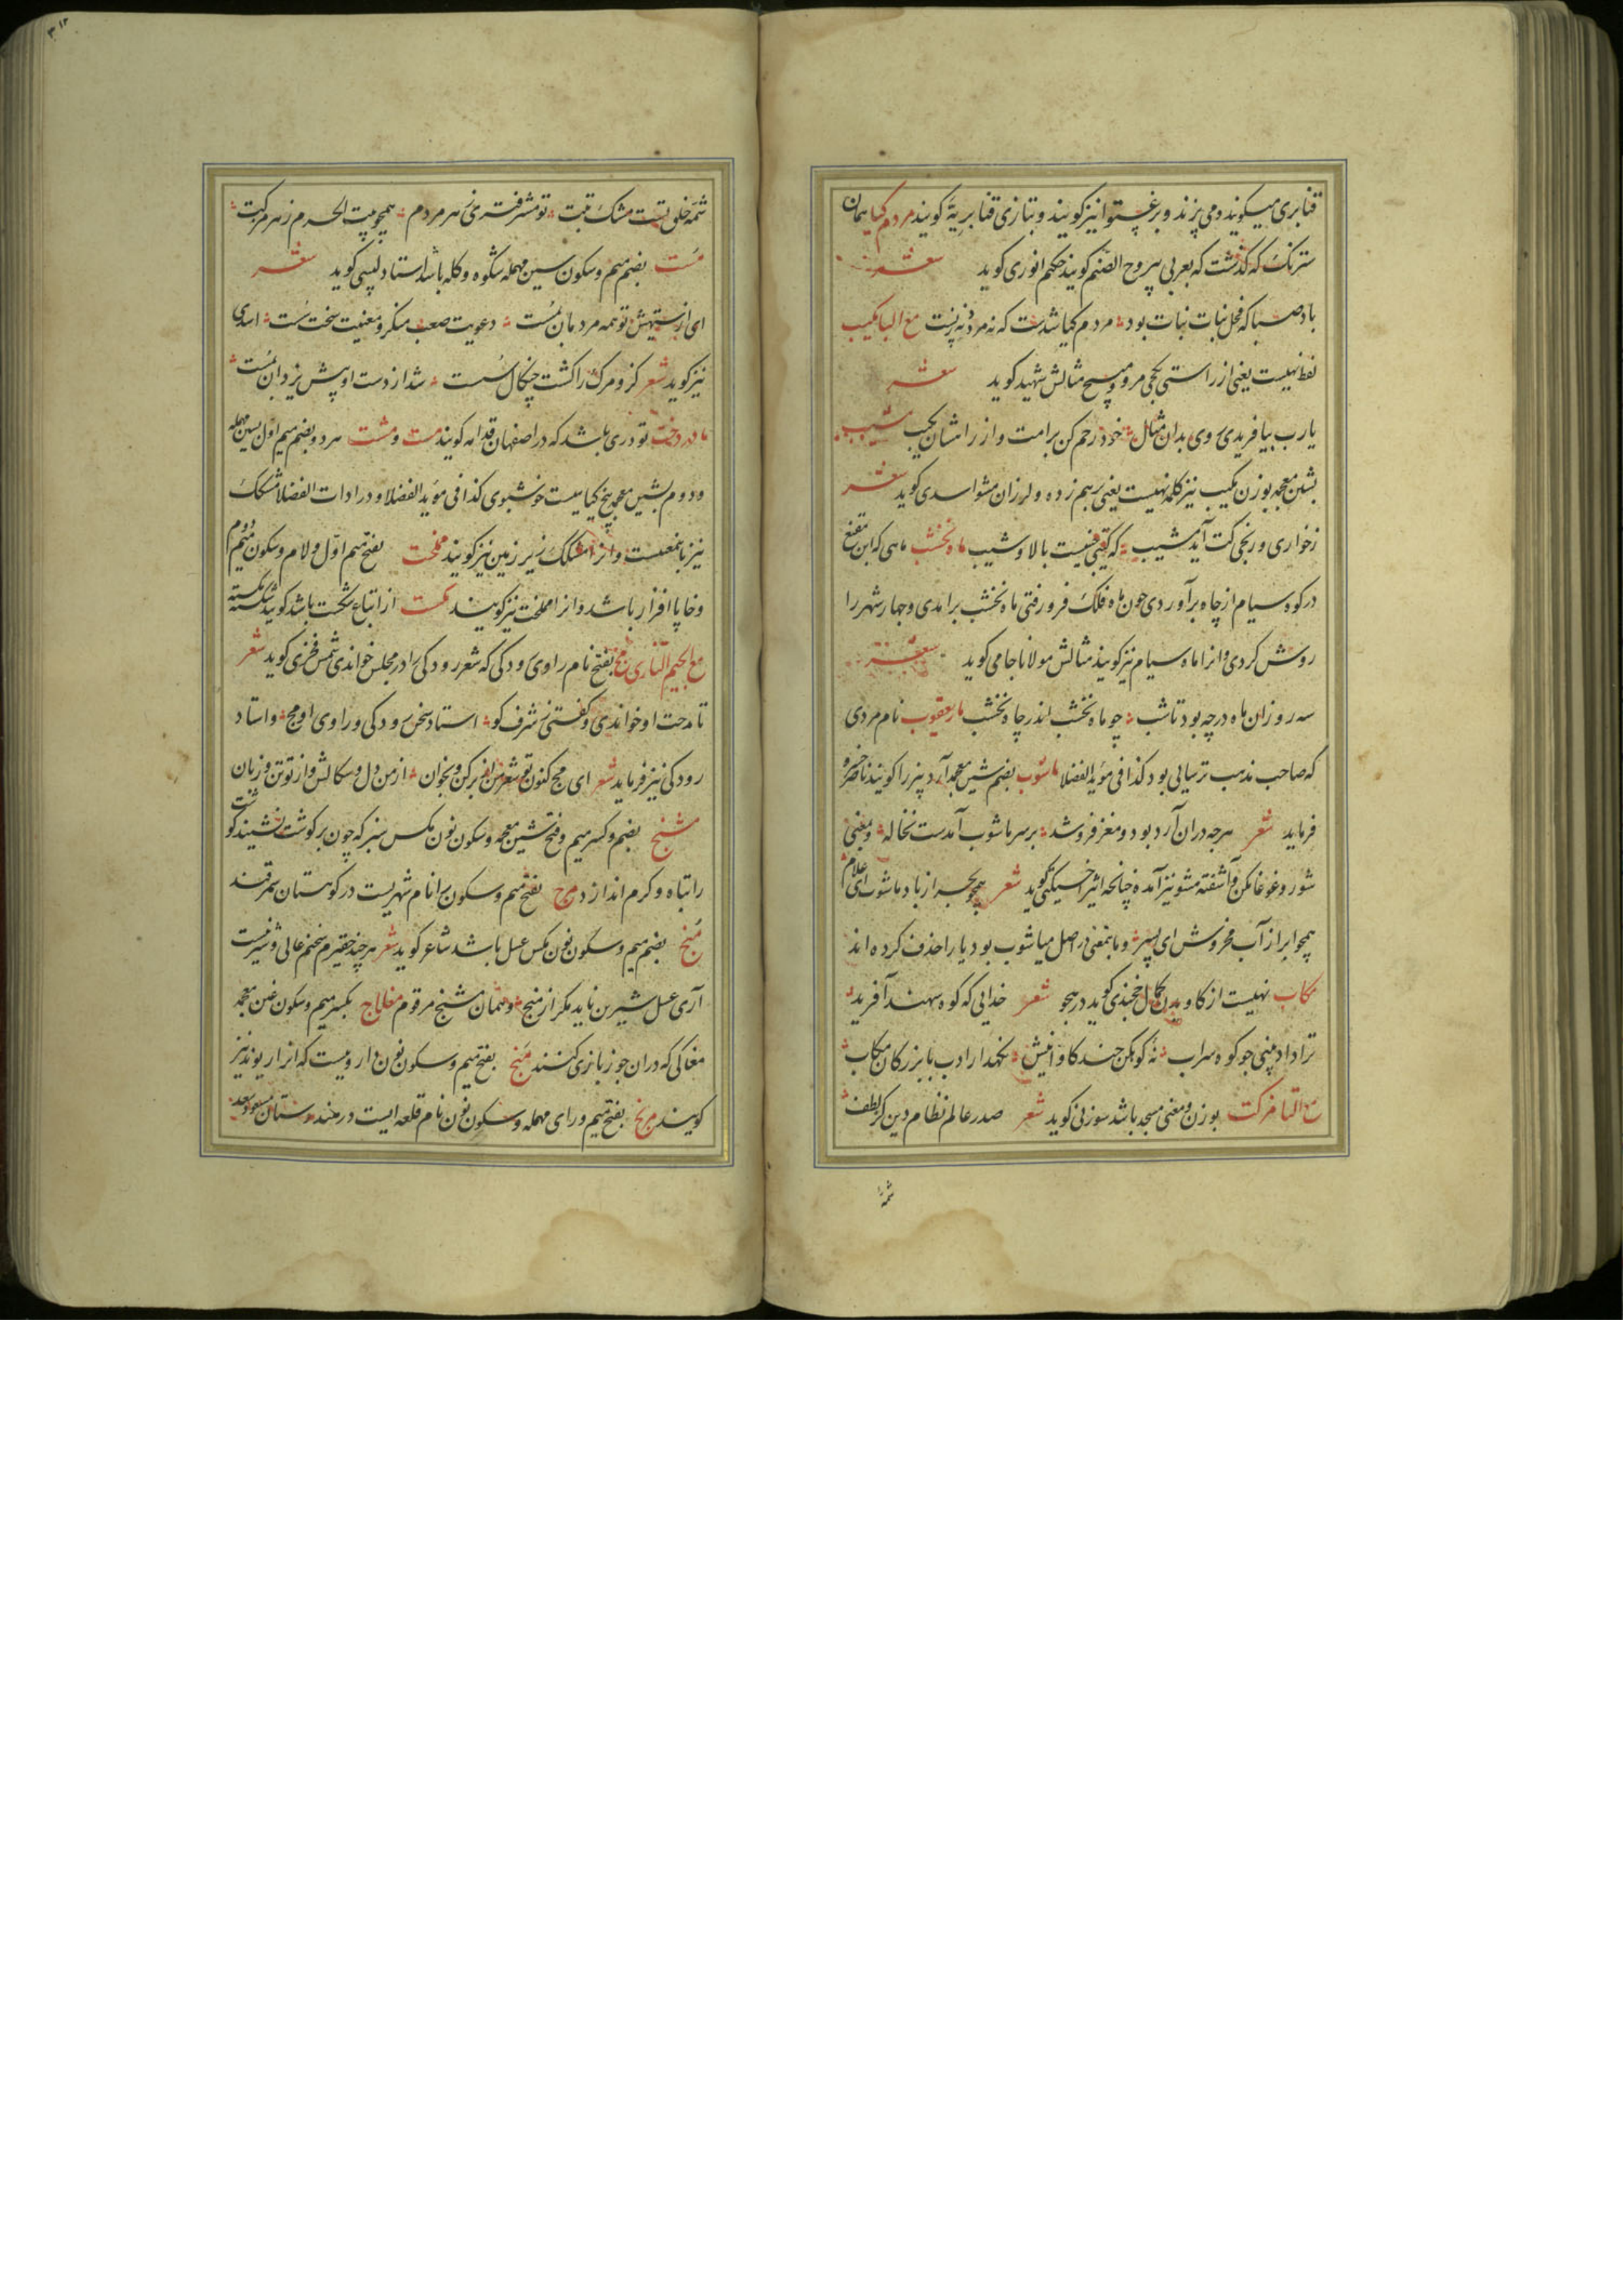 قنابری میکویند و می پزند و برغچتوا نیز کویند و بتازی قنابریه کویند مردم کیا همان
سترنک که کذشت که بعربی یبروح الصنم کویند حکیم انوری کوید شعر
باد صبا که فحل نبات نبات بود مردم کیا شدست که نه مرد و نه زنست مع البا مکیب
لفظ نهیست یعنی از راستی بکجی مرو و مپیچ مثالش شهید کوید شعر
یارب بیافریدی روی بدان مثال خود رحم کن برامت و از راهشان مکیب مشیب
بشین معجمه بوزن مکیب نیز کلمه نهیست یعنی برهم زده و لرزان مشو اسدی کوید شعر
زخواری و رنجی کت آید مشیب که کیتی فنیست بالا و شیب ماه نخشب ماهی که ابن مقنع
در کوه سیام از چاه برآوردی چون ماه فلک فرو رفتی ماه نخشب برامدی و چهار شهر را
روشن کردی و انرا ماه سیام نیز کویند مثالش مولانا جامی کوید شعر
سه روز ان ماه در چه بود تا شب چو ماه نخشب اندر چاه نخشب مار یعقوب نام مردی
که صاحب مذهب ترسایی بود کذا فی مؤید الفضلا ماشوب بضم شین معجمه آرد بیز را کویند ناصر خسرو
فرماید شعر هرچه دران آرد بود و مغز فرو شد برسر ماشوب آمدست نخاله و بمعنی
شور و غوغا مکن و آشفته مشو نیز آمده چنانچه اثیر اخسیکتی کوید شعر همچو بحر از باد ماشوب ای غلام
همچو ابر از آب مخروش ای پسر و باینمعنی در اصل میاشوب بود یا را حذف کرده اند
مکاب نهیست از کاویدن کمال خجندی کوید در هجو شعر خدایی که کوه سهند آفرید
ترا داد بینی چو کوه سراب نه کوهکن چند کاوانیش نکهدار ادب با بزرکان مکاب
مع التا مزکت بوزن و معنی مسجد باشد سوزنی کوید شعر صدر عالم نظام دین کز لطف
شمۀ
۳۱۲
شمۀ خلق تست مشک تبت تو مشرفتری ز هر مردم همچو بیت الحرم ز هر مزکت
مست بضم میم و سکون سین مهمله شکوه و کله باشد استاد لبیبی کوید شعر
ای از ستیهش تو همه مردمان بمست دعویت صعب منکر و معنیت سخت سست اسدی
نیز کوید شعر کزو مرک را کشت چنکال سست شد از دست او پیش یزدان بمست
مادر دخت تودری باشد که در اصفهان قدامه کویند مست و مشت هر دو بضم میم اول بسین مهمله
و دوم بشین معجمه بیخ کیاهیست خوشبوی کذا فی مؤید الفضلا و در ادات الفضلا مشکک
نیز باینمعنیست و انرا مشکک زیر زمین نیز کویند ملخت بفتح میم اول و لام و سکون میم دوم
و خا پا افزار باشد و انرا مملخت نیز کویند مکست از اتباع شکست باشد کویند شکسته مکسته
مع الجیم التازی مج بفتح نام راوی رودکی که شعر رودکی را در مجلس خواندی شمس فخری کوید شعر
تا مدحت او خواندی و کفتی ز شرف کو استاد سخن رودکی و راوی او مج و استاد
رودکی نیز فرماید شعر ای مج کنون تو شعر من از بر کن و بخوان از من دل و سکالش و از تو تن و زبان
مشنج بضم و کسر میم و فتح شین معجمه و سکون نون مکس سبز که چون بر کوشت نشیند کوشت
را تباه و کرم اندازد مرج بفتح میم و سکون را نام شهریست در کوهستان سمرقند
منج بضم میم و سکون نون مکس عسل باشد شاعر کوید شعر هرچند حقیرم سخنم عالی و شیرینست
آری عسل شیرین ناید مکر از منج و همان مشنج مرقوم مغلاج بکسر میم و سکون غین معجمه
مغاکی که دران جوز بازی کنند منج بفتح میم و سکون نون دارویست که انرا ریوند نیز
کویند مرنج بفتح میم و رای مهمله و سکون نون نام قلعه ایست در هندوستان مسعود سعد